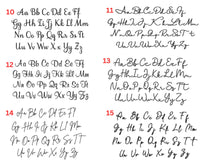 10
Aa Bb Cc Dd Ee Ff
Gg Hh Ii Jj Kk Ll Mm
Nn Oo Pp Qq Rr Ss Tt
Uu Vv Ww Xx Yy Zz
12
Aa Bb Cc Dd Ee Ff
Gg Hh Ii Jj Kk Ll Mm
Nn Oo Pp Qq Rr Ss Tt
Uu Vv Ww Xx Yy Zz
14
Aa Bb Cc Dd Ee Ff
Gg Hh Ii Jj Kk Ll Mm
Nn Oo Pp Qq Rr Ss Tt
Uu Vv Ww Xx Yy Zz
11
Aa Bb Cc Dd Ee Ff
Gg Hh Ii Jj Kk Ll Mm
Nn Oo Pp Qq Rr Ss Tt
Uu Vv Ww Xx Yy Zz
13
Aa Bb Cc Dd Ee Ff
Gg Hh Ii Jj Kk Ll Mm
Nn Oo Pp Qq Rr Ss Tt
Uu Vv Ww Xx Yy Zz
15
Aa Bb Cc Dd Ee Ff
Gg Hh Ii Jj Kk Ll Mm
Nn Oo Pp Qq Rr Ss Tt
Uu Vv Ww Xx Yy Zz